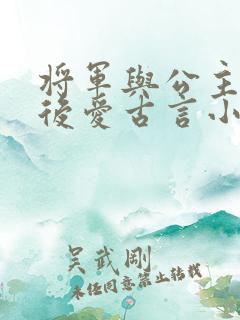 將軍與公主
後愛古言小
吴武剛
未经同意禁止转载